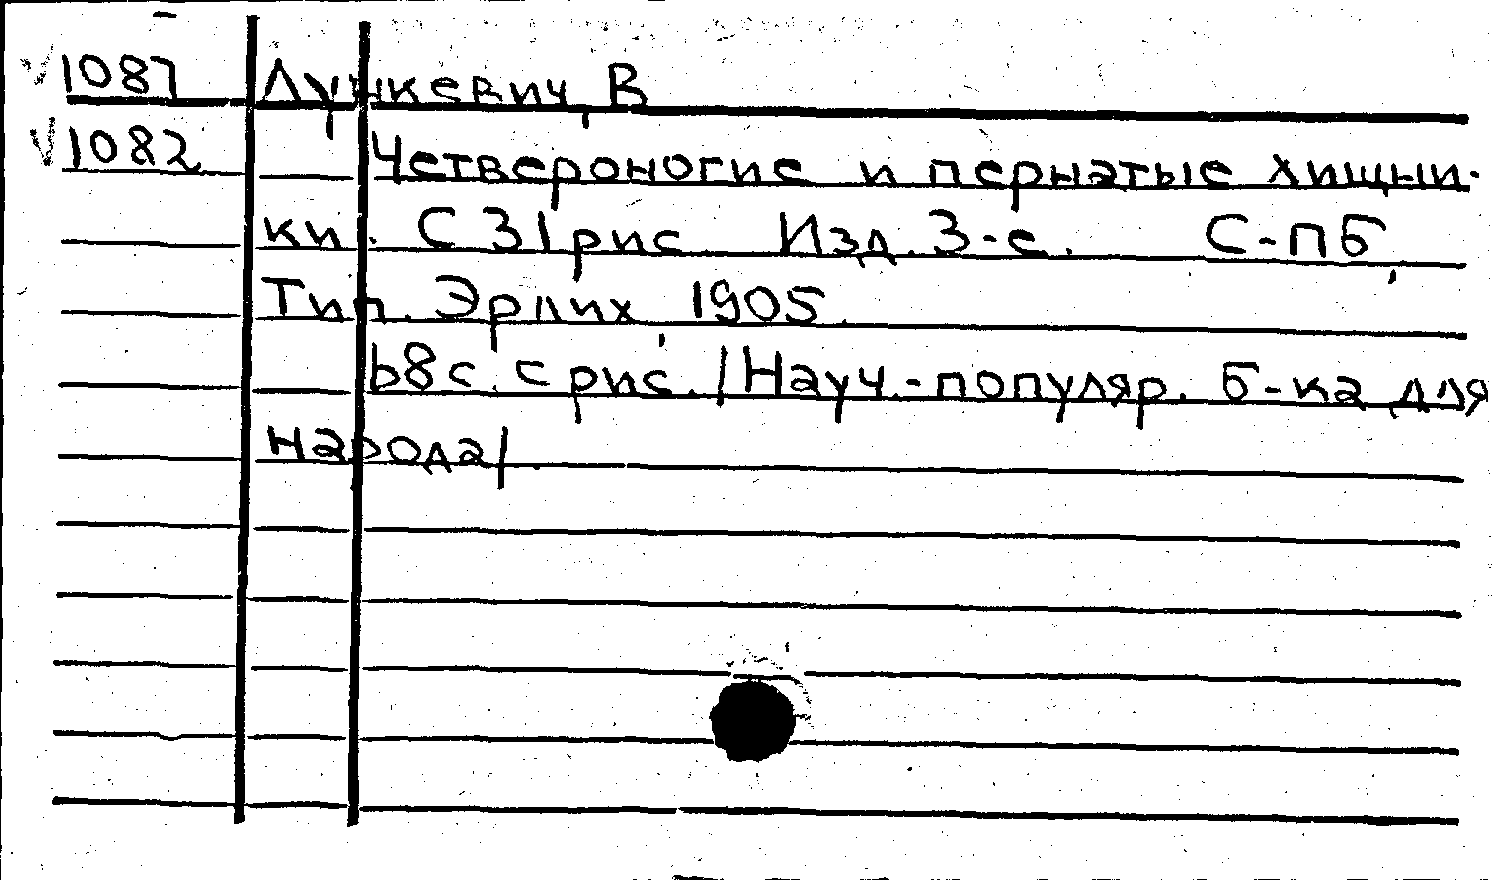 1081 Лункевич, В
1082 Четвероногие и пернатые хищни-
ки. С 31 рис. Изд. 3-е. С-ПБ,
Тип. Эрлих, 1905.
68 с. с рис. /Науч.-популяр. б-ка для
народа/.